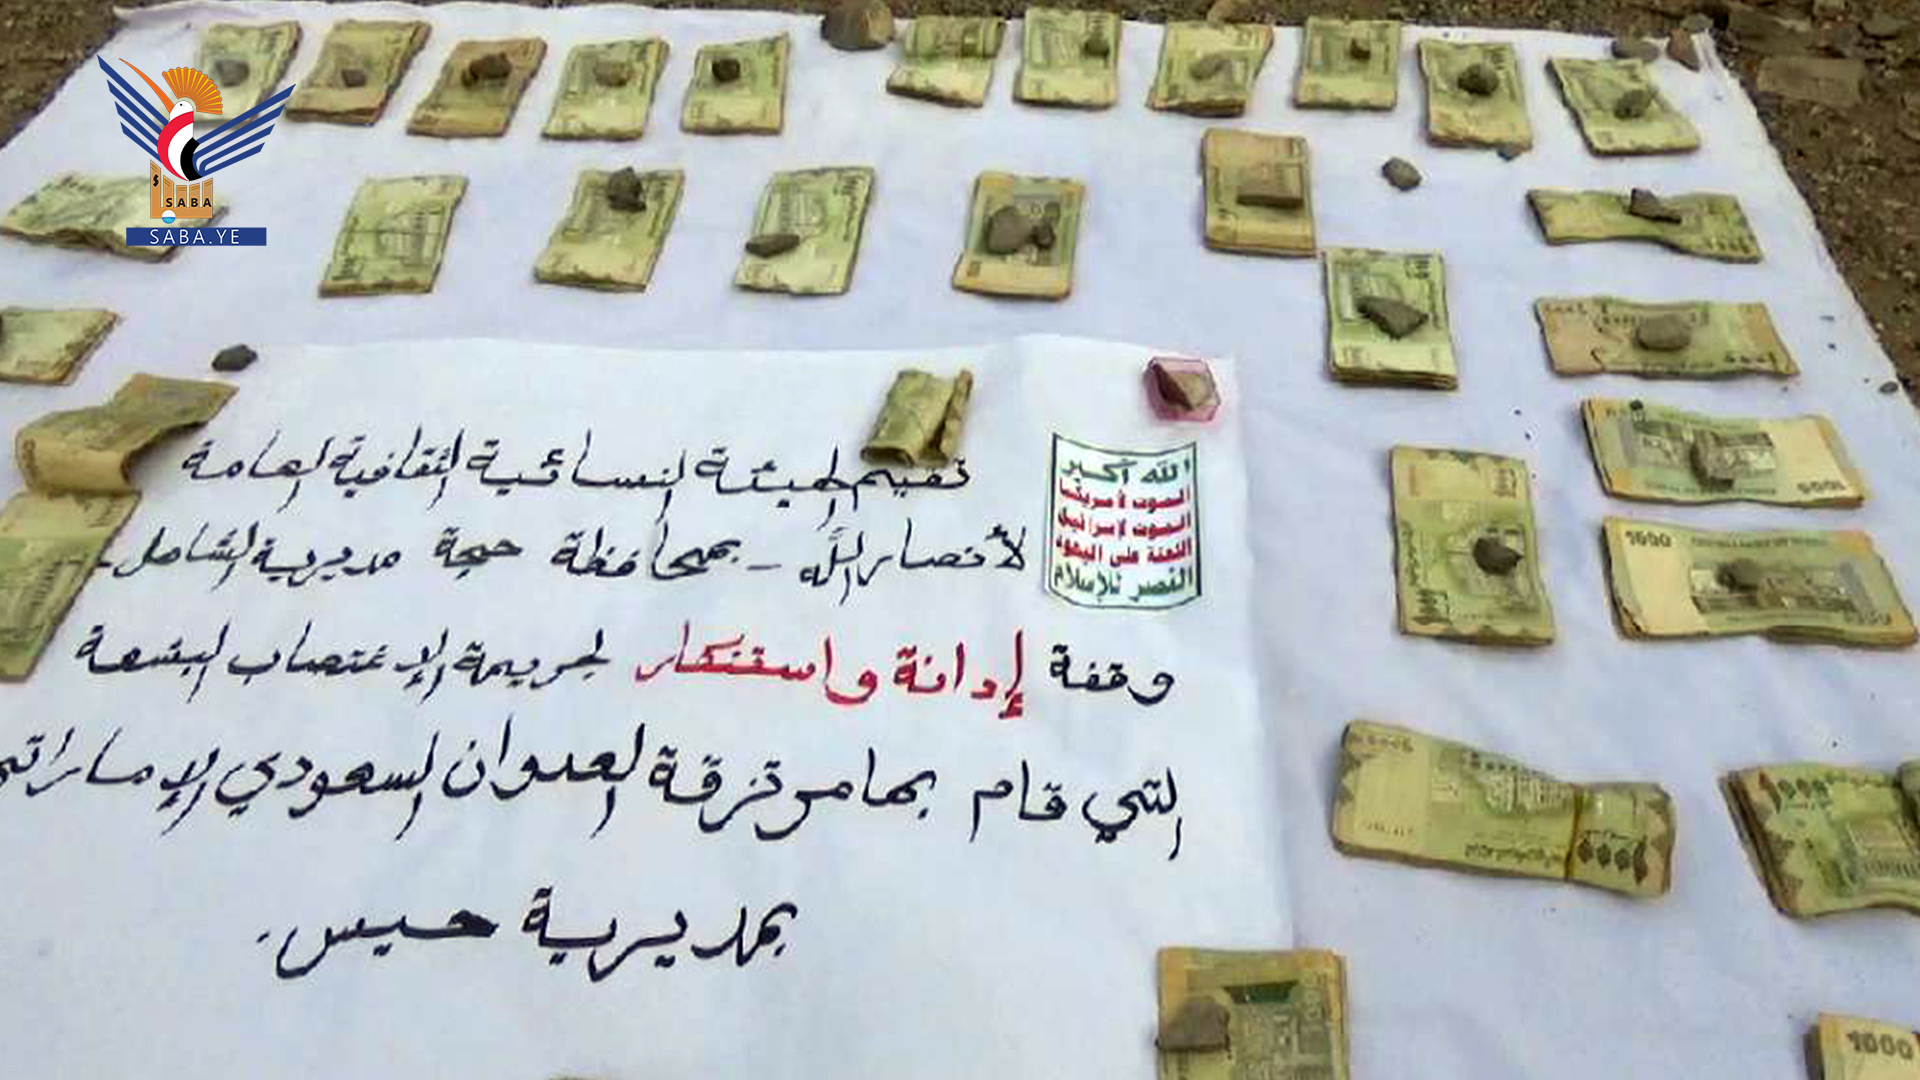 SABA
SABA.YE
تقيم الهيئة النسائية الثقافية العامة
لأنصار الله - بمحافظة حجة مديرية الشاهل
وقفة إدانة واستنكار لجريمة الإغتصاب البشعة
التي قام بها مرتزقة العدوان السعودي الإماراتي
بمديرية حيس.
الله أكبر
الموت لأمريكا
الموت لإسرائيل
اللعنة على اليهود
النصر للإسلام
1000
1000